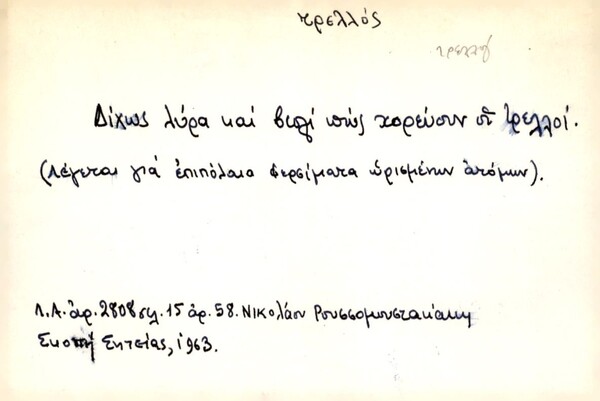 τρελλός
τρελλός
Δίχως λύρα καί βιολί πώς χορεύουν οἱ τρελλοί.
(Λέγεται γιά ἐπιπόλαια φερσίματα ὡρισμένων ἀτόμων).
Λ.Α. ἀρ. 2808 σελ. 15 ἀρ. 58. Νικολάου Ρουσσομουστακάκη
Σκοπή Σητείας, 1963.